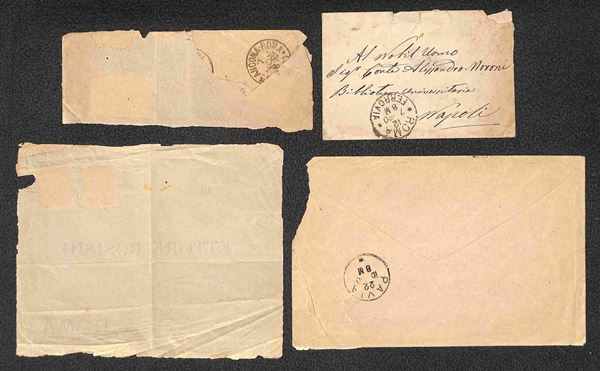 ANCONA-ROMA
Al Nobil Uomo
Sigr Conte Alessandro Moroni
Biblioteca Universitaria
Napoli
ROMA
FERROVIA
12
7-80
8 M
ETTORE ROSISIO
ROMA
PAVIA
22
8 M